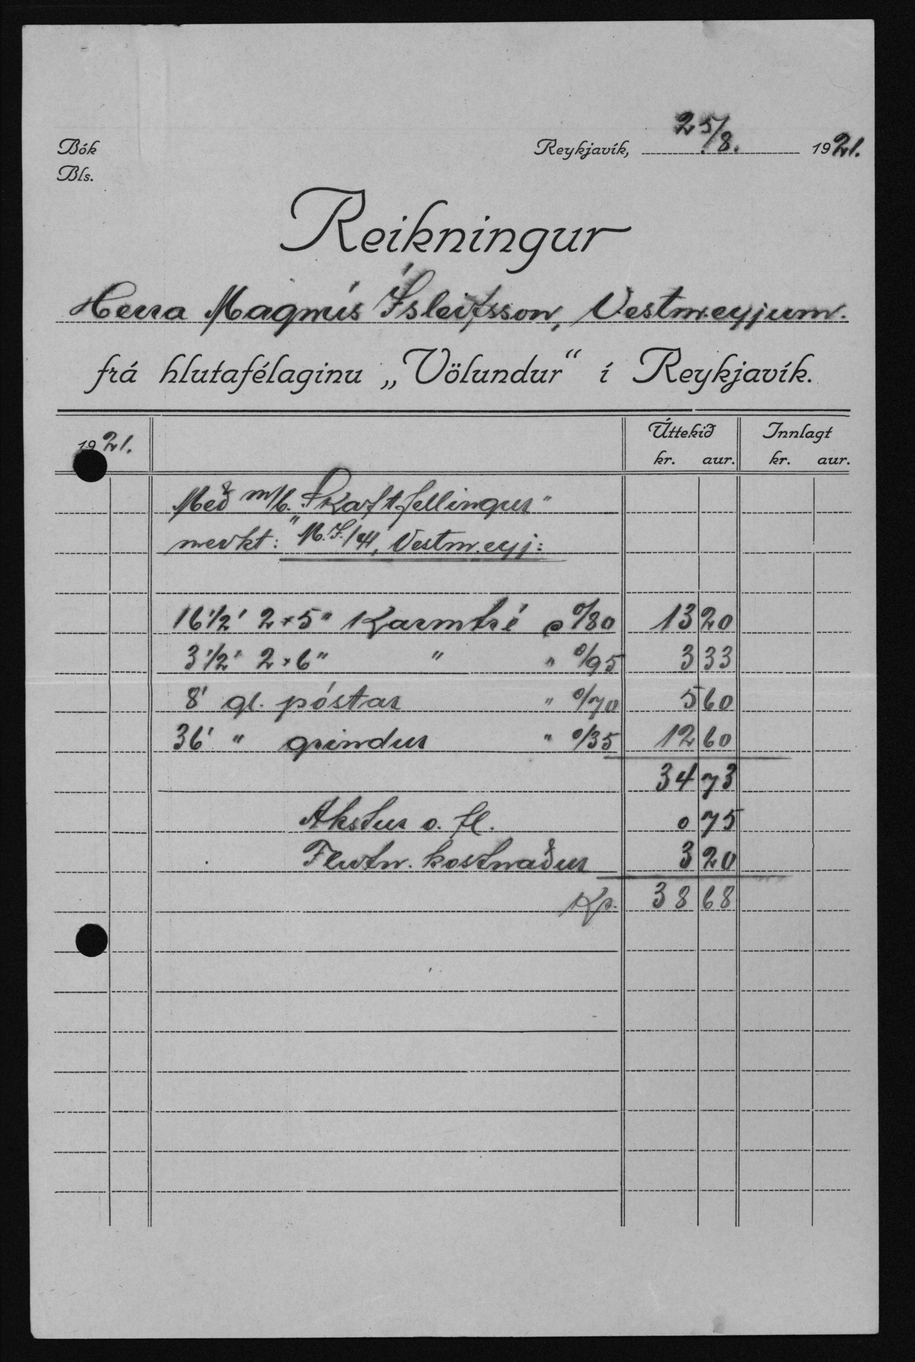 Bók
Bls.
Reykjavík, 25/8. 1921.
Reikningur
Herra Magnús Ísleifsson, Vestm.eyjum.
frá hlutafélaginu „Völundur“ í Reykjavík.
1921.
Úttekið Innlagt
kr. aur. kr. aur.
Með m/b. "Skaftfellingur"
merkt: "M.Í./41, Vestm.eyj:
16 1/2' 2 x 5" Karmtré @ 0/80 13 20
3 1/2' 2 x 6" " " 0/95 3 33
8' gl. póstar " 0/70 5 60
36' " grindur " 0/35 12 60
34 73
Akstur o. fl. 0 75
Flutn. kostnaður 3 20
Kr. 38 68